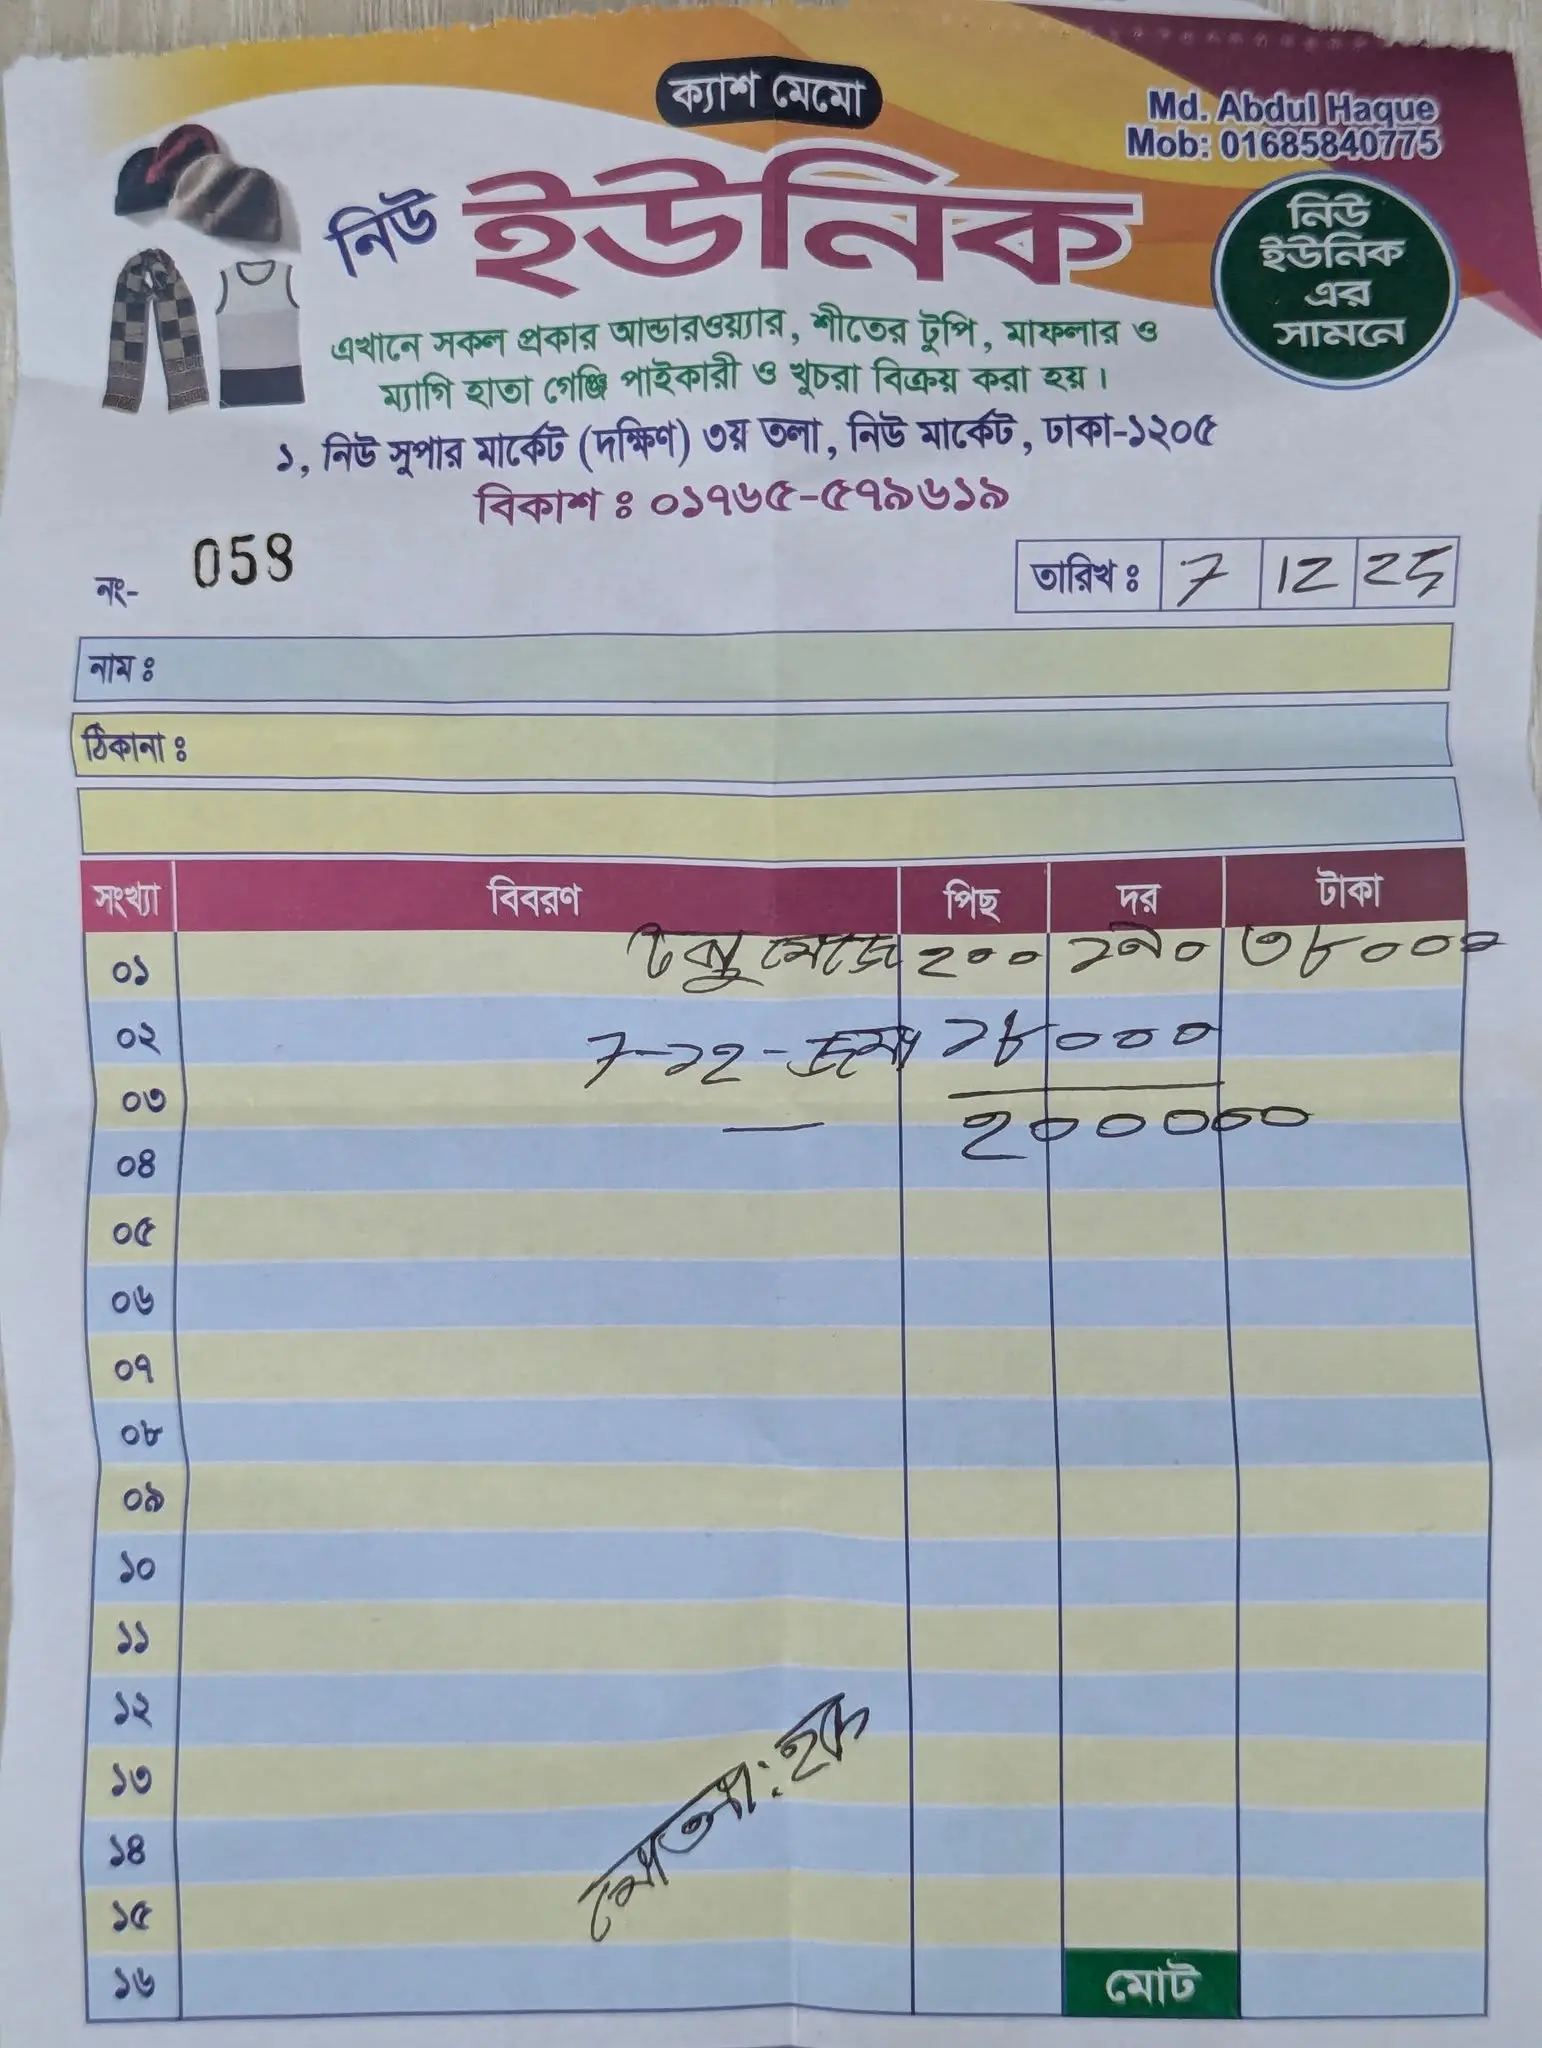 ক্যাশ মেমো
Md. Abdul Haque
Mob: 01685840775
নিউ ইউনিক
নিউ
ইউনিক
এর
সামনে
এখানে সকল প্রকার আন্ডারওয়্যার, শীতের টুপি, মাফলার ও
ম্যাগি হাতা গেঞ্জি পাইকারী ও খুচরা বিক্রয় করা হয়।
১, নিউ সুপার মার্কেট (দক্ষিণ) ৩য় তলা, নিউ মার্কেট, ঢাকা-১২০৫
বিকাশ ঃ ০১৭৬৫-৫৭৯৬১৯
নং- 059
তারিখ ঃ 7 12 25
নাম ঃ
ঠিকানা ঃ
সংখ্যা বিবরণ পিছ দর টাকা
০১ ২০০ ১৯০ ৩৮০০০
০২ 7-১২ - জমা ১৮০০০
০৩ — ২০০০০০
০৪
০৫
০৬
০৭
০৮
০৯
১০
১১
১২
১৩
১৪
১৫
১৬ মোট